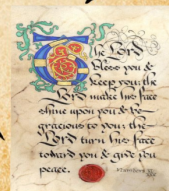 The Lord
bless you &
keep you: the
Lord make his face
shine upon you & be
gracious to you: the
Lord turn his face
toward you & give you
peace.